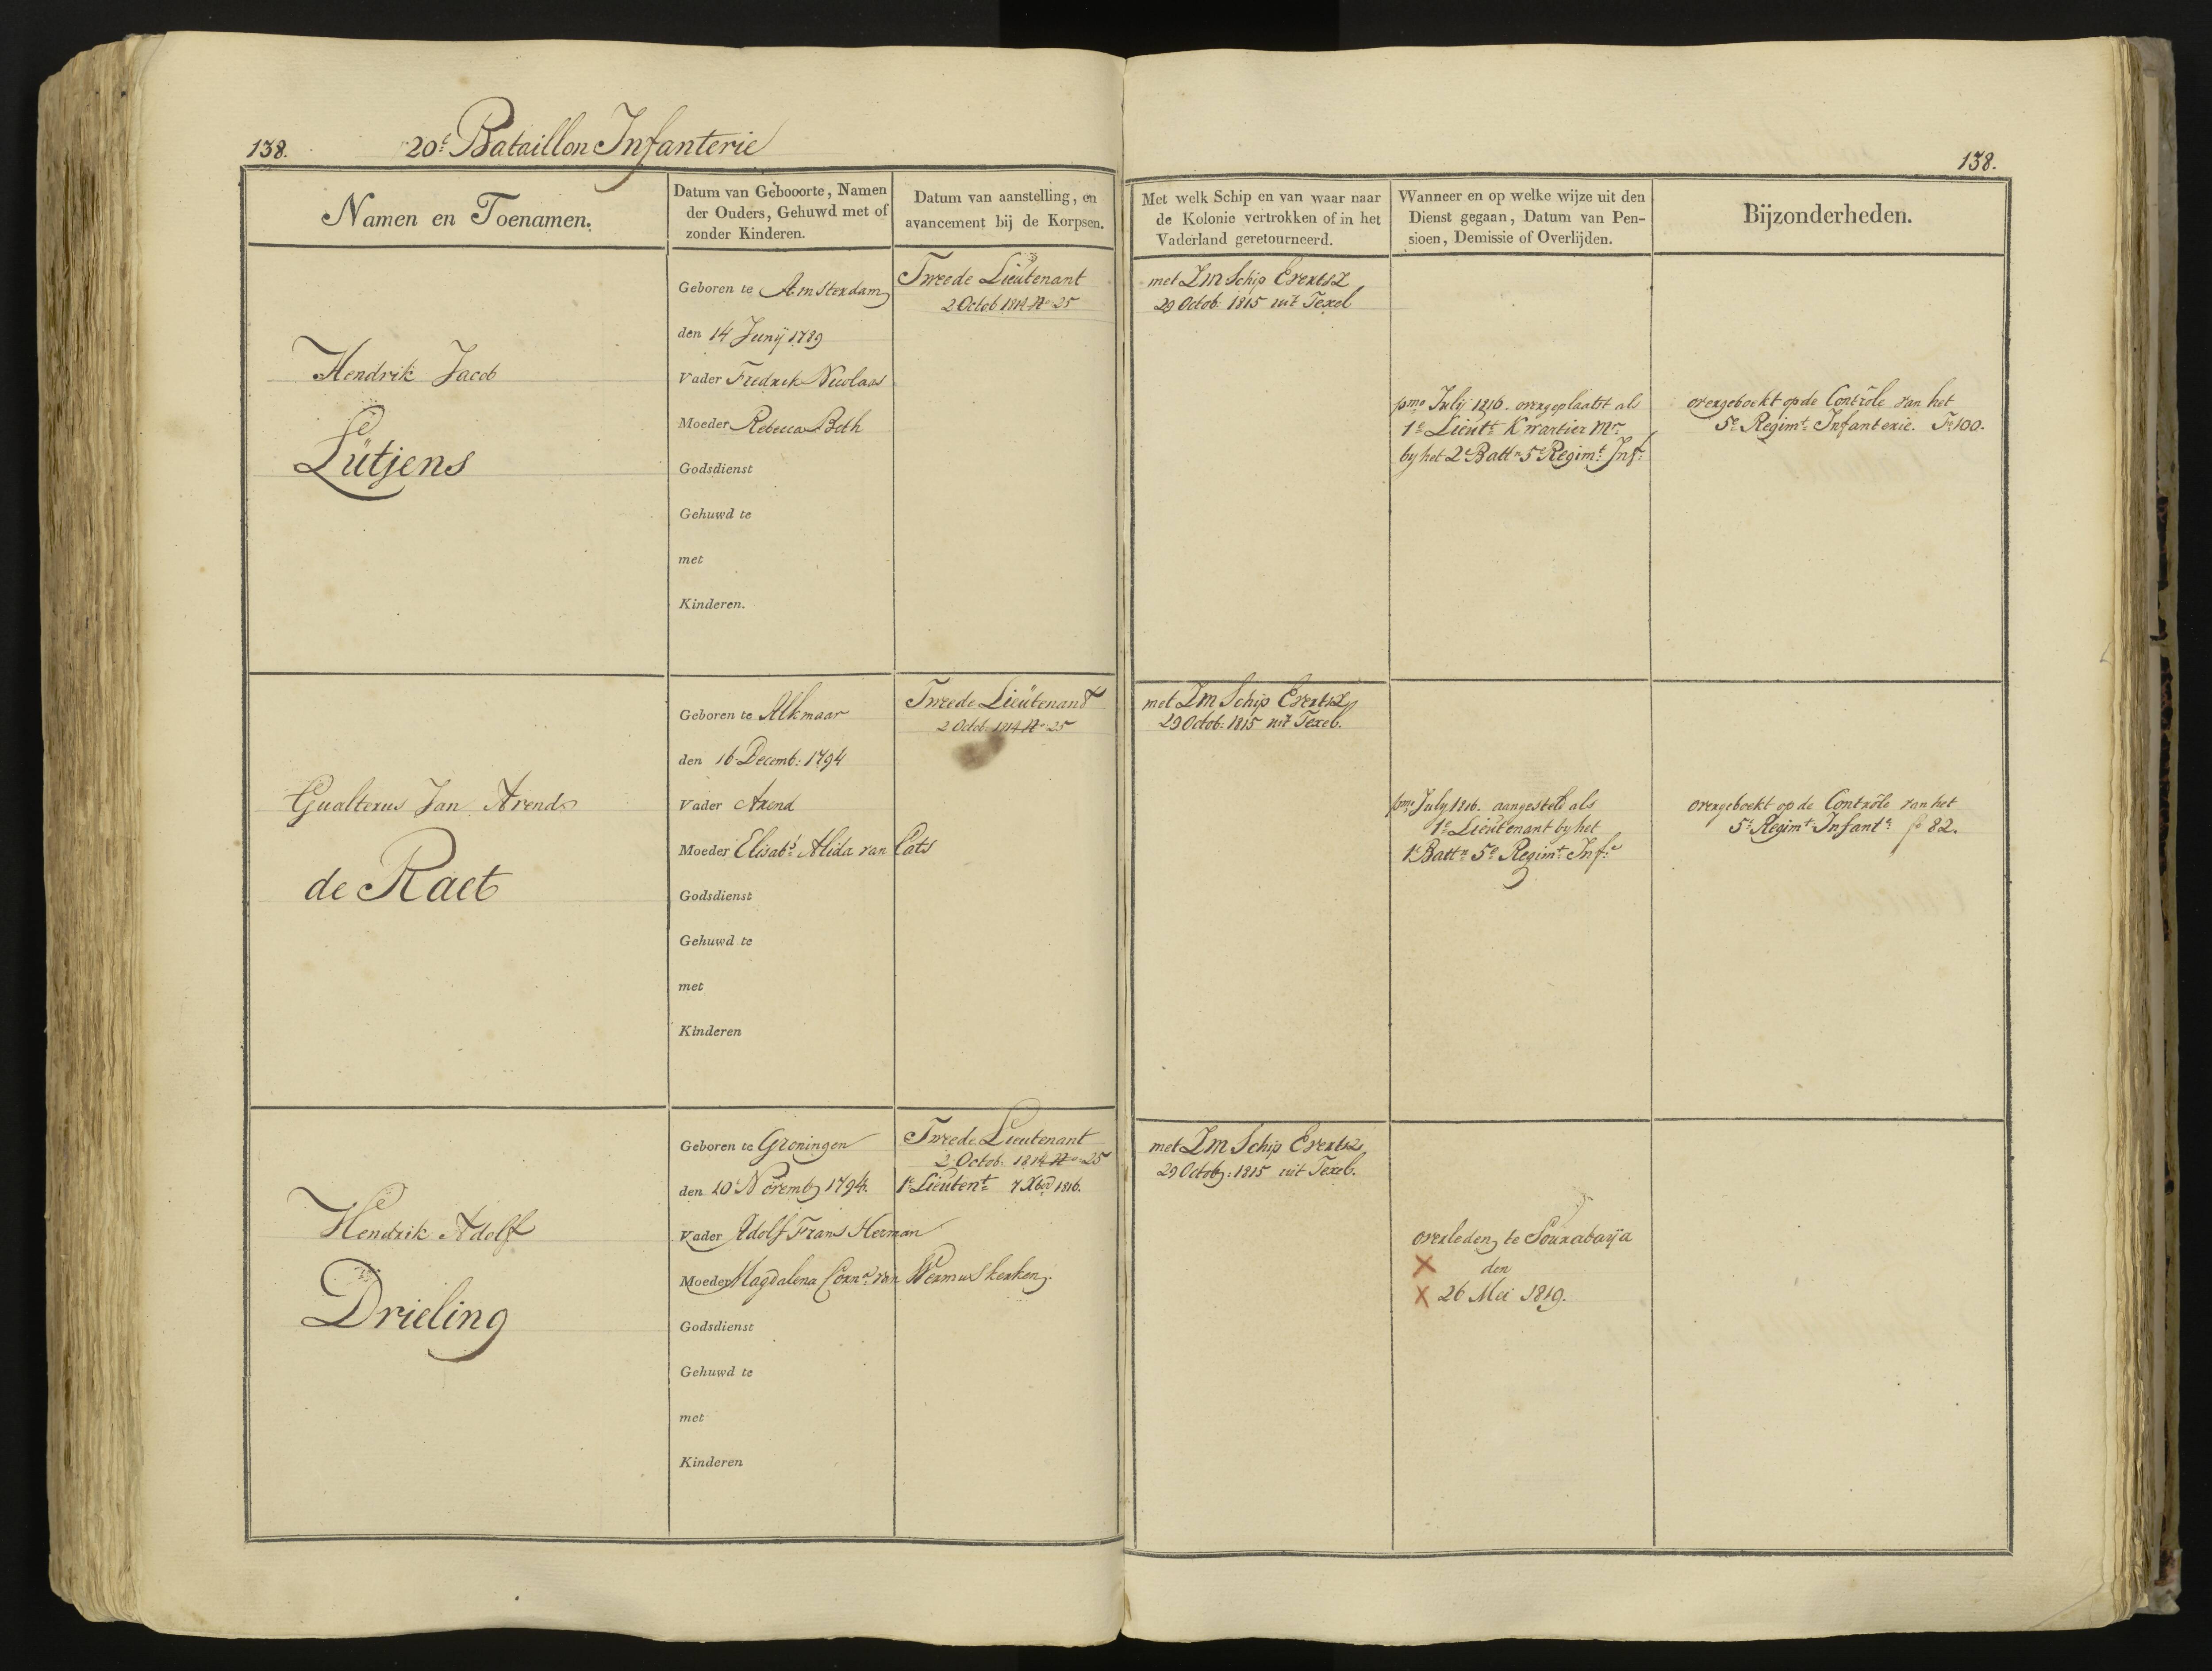 138.
20e Bataillon Infanterie
138.
Namen en Toenamen.
Datum van Gebooorte, Namen
der Ouders, Gehuwd met of
zonder Kinderen.
Datum van aanstelling, en
avancement bij de Korpsen.
Met welk Schip en van waar naar
de Kolonie vertrokken of in het
Vaderland geretourneerd.
Wanneer en op welke wijze uit den
Dienst gegaan, Datum van Pen-
sioen, Demissie of Overlijden.
Bijzonderheden.
Hendrik Jacob
Lütjens
Geboren te Amsterdam
den 14 Junij 1789
Vader Fredrik Nicolaas
Moeder Rebecca Both
Godsdienst
Gehuwd te
met
Kinderen.
Tweede Lieutenant
2 Octob 1814 No 25
met Zm Schip Evertsz
29 Octob: 1815 uit Texel
pmo Julij 1816. overgeplaatst als
1e Lieutt Kwartier Mr
by het 2e Battn 5e Regimt Inf:
overgeboekt op de Contrôle van het
5e Regimt Infanterie. Fo 100.
Gualterus Jan Arend
de Raet
Geboren te Alkmaar
den 16 Decemb: 1794
Vader Arend
Moeder Elisabt Alida van Cats
Godsdienst
Gehuwd te
met
Kinderen
Tweede Lieutenant
2 Octob: 1814 No 25
met Zm Schip Evertsz
29 Octob: 1815 uit Texel.
pmo July 1816. aangesteld als
1e Lieutenant by het
1e Battn 5e Regimt Infe
overgeboekt op de Contrôle van het
5e Regimt Infante fo 82.
Hendrik Adolf
Drieling
Geboren te Groningen
den 20 Novemb 1794.
Vader Adolf Frans Herman
Moeder Magdalena Corna van Wermeskerken
Godsdienst
Gehuwd te
met
Kinderen
Tweede Lieutenant
2 Octob: 1814 No 25
1e Lieutent 7 Xber 1816.
met Zm Schip Evertsz
29 Octob: 1815 uit Texel.
overleden te Sourabaÿa
den
26 Mei 1819.